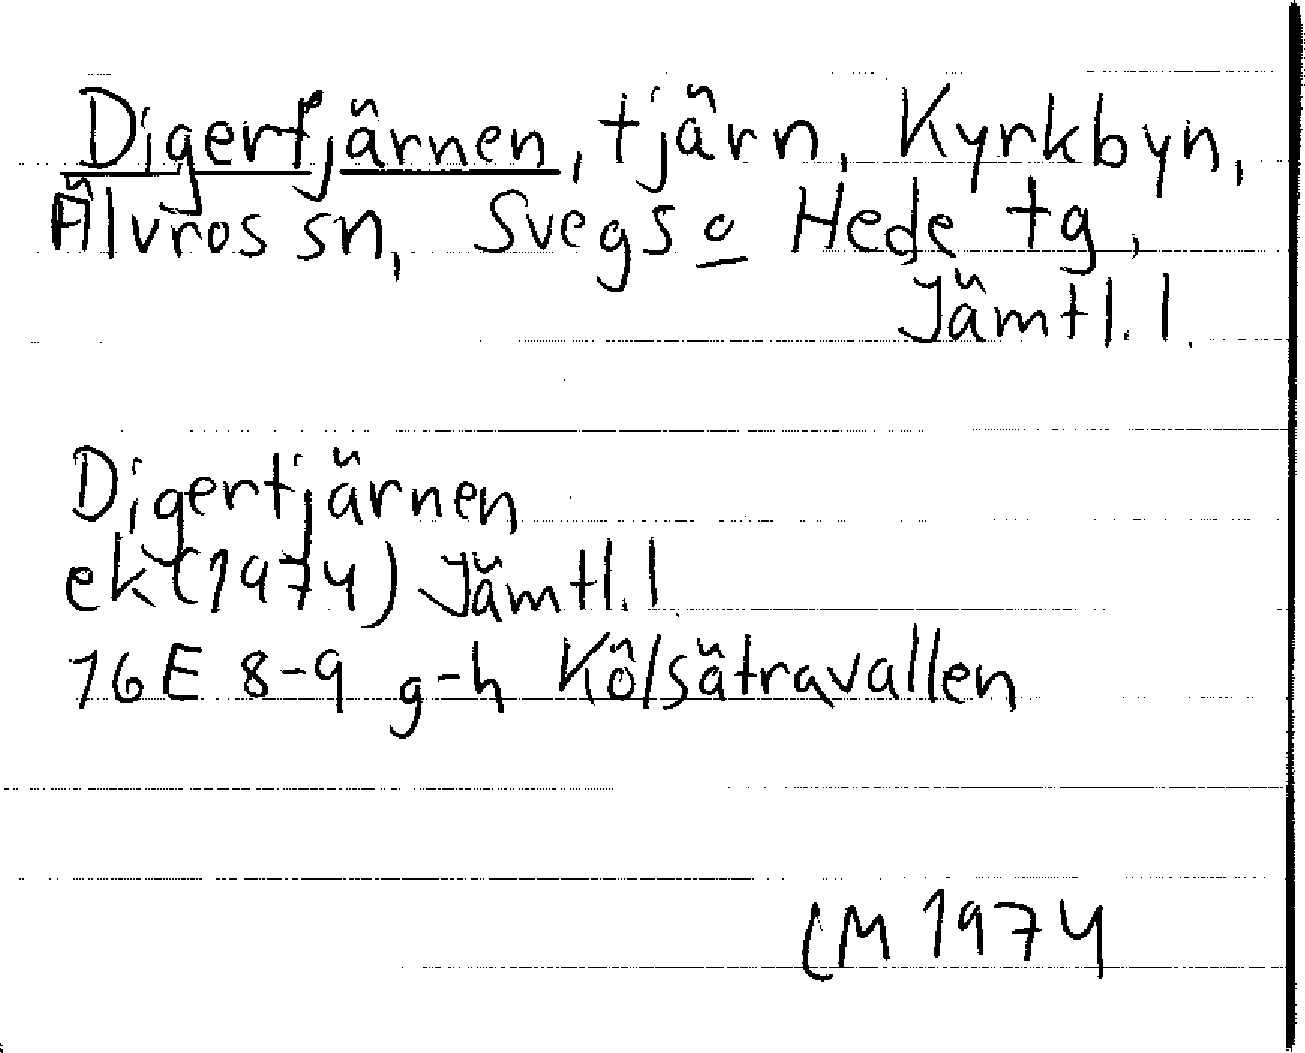 Digertjärnen, tjärn, Kyrkbyn,
Älvros sn, Svegs o Hede tg,
Jämtl. l.
Digertjärnen
ek (1974) Jämtl. l.
16E 8-9 g-h Kölsätravallen
CM 1974